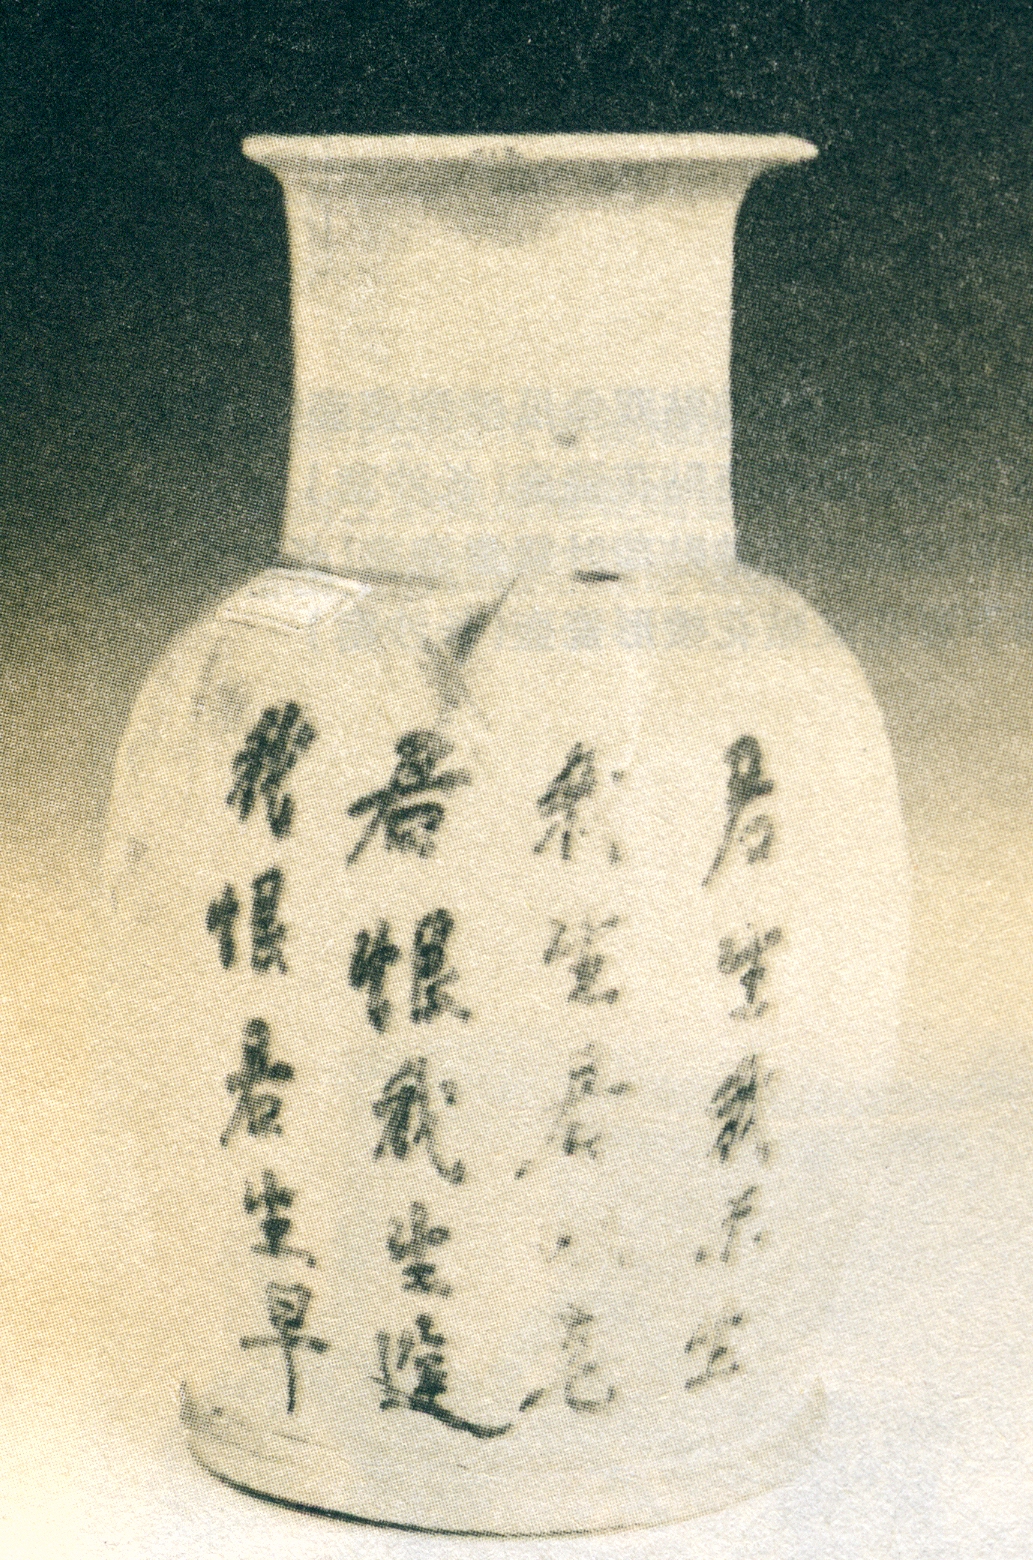 君生我未生
我生君老
君恨我生遲
我恨君生早